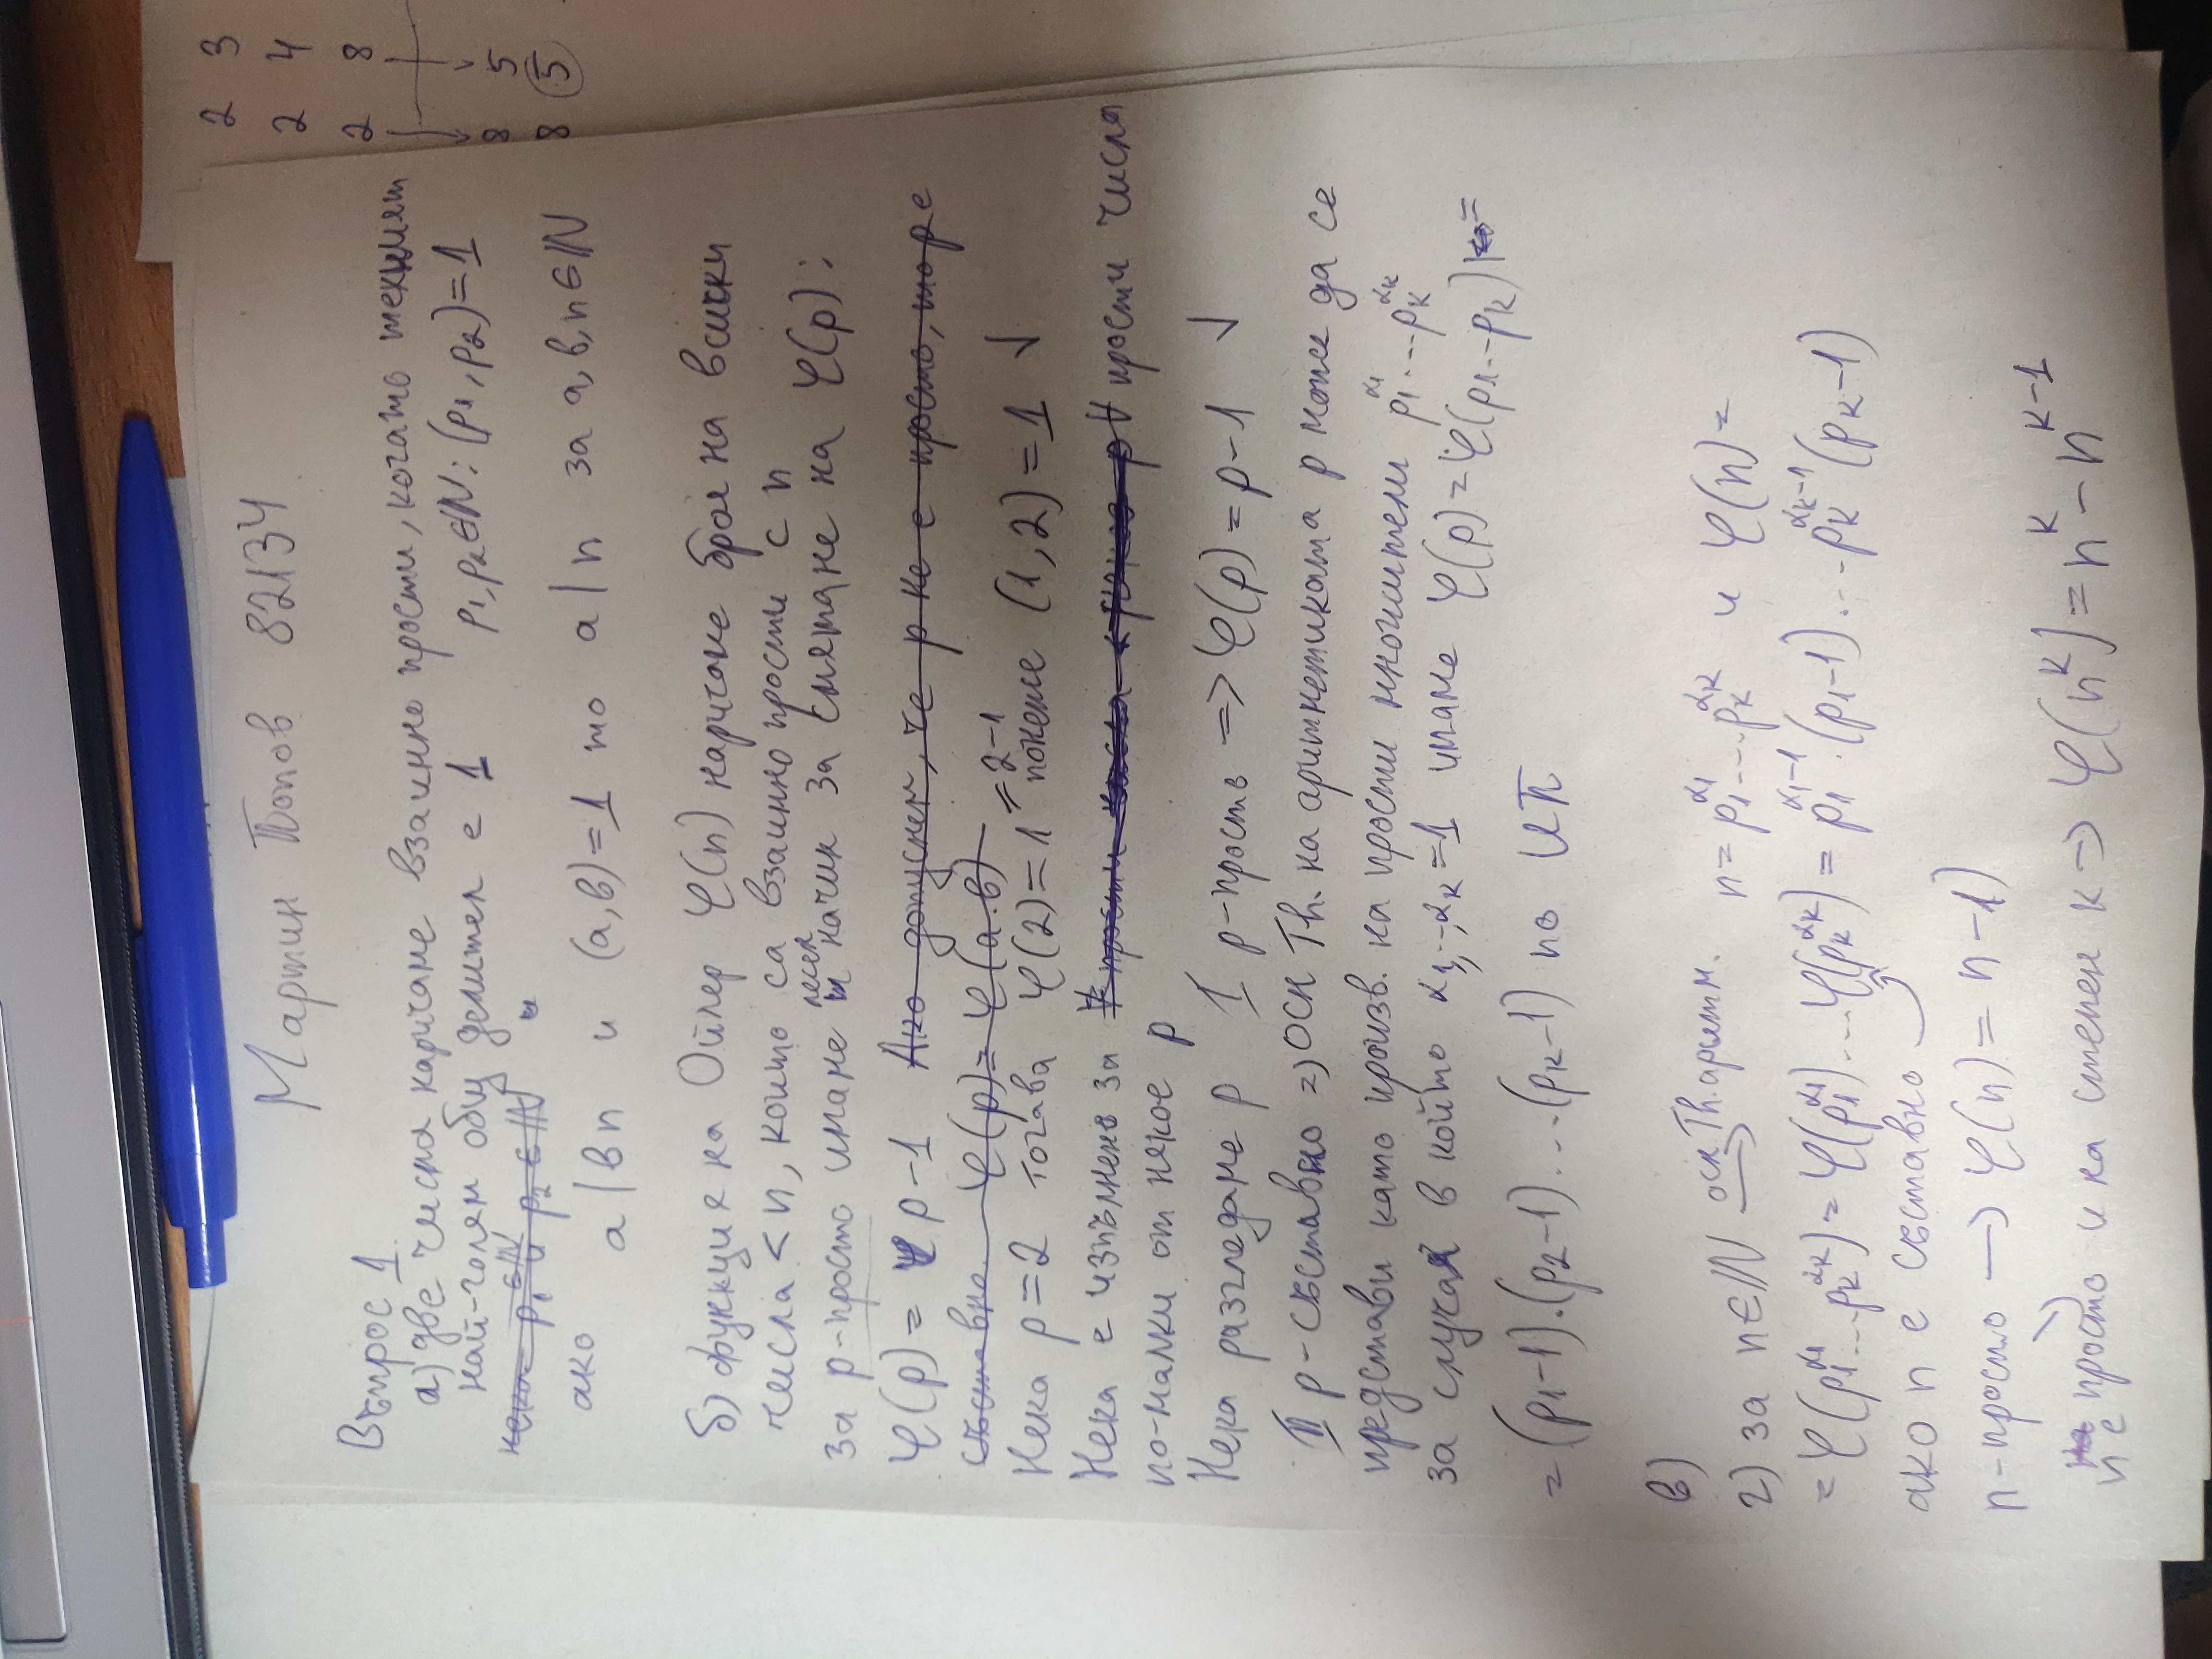 Мартин Попов 82134
Въпрос 1
а) две числа наричаме взаимно прости, когато техният
най-голям общ делител е 1 p₁, p₂ ∈ ℕ : (p₁, p₂) = 1
нека p₁ ∈ ℕ и p₂ ∈ ℕ и
ако a | bn и (a, b) = 1 то a | n за a, b, n ∈ ℕ
б) функция на Ойлер φ(n) наричаме броя на всички
числа < n, които са взаимно прости с n
за p-просто имаме лесен начин за смятане на φ(p):
φ(p) = p-1 Ако допуснем, че p не е просто, то p е
съставно φ(p) = φ(a.b)
Нека p=2 тогава φ(2) = 1 = 2-1 понеже (1, 2) = 1 √
Нека е изпълнено за ∀ прости числа ∀ прости числа
по-малки от някое p
Нека разгледаме p I p-просто => φ(p) = p-1 √
II p-съставно => осн Th. на аритметиката p може да се
представи като произв. на прости множители p₁^α₁ ... pₖ^αₖ
за случая в който α₁, .., αₖ = 1 имаме φ(p) = φ(p₁...pₖ) =
= (p₁-1).(p₂-1). ... (pₖ-1) по ИП
в)
г) за n ∈ ℕ осн Th. аритм. → n = p₁^α₁ ... pₖ^αₖ и φ(n) =
= φ(p₁^α₁ ... pₖ^αₖ) = φ(p₁^α₁) ... φ(pₖ^αₖ) = p₁^(α₁-1) . (p₁-1) ... pₖ^(αₖ-1) (pₖ-1)
ако n е съставно
n-просто → φ(n) = n-1)
n е просто и на степен k → φ(n^k) = n^k - n^(k-1)
2 3
2 4
2 8
8 5
8 5